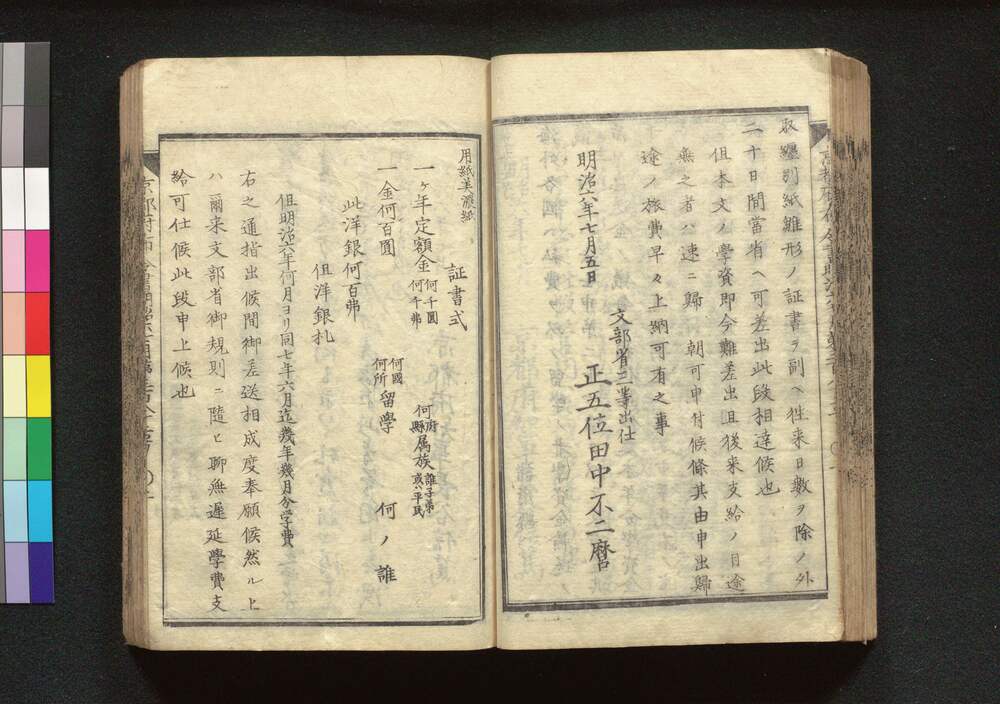 取纒別紙雛形ノ証書ヲ副ヘ往来日数ヲ除ノ外
二十日間當省ヘ可差出此段相達候也
但本文ノ學資即今難差出且後来支給ノ目途
無之者ハ速ニ歸朝可申付候條其由申出歸
途ノ旅費早々上納可有之事
明治六年七月五日
文部省三等出仕
正五位田中不二麿
用紙美濃紙
証書式
一ヶ年定額金何千圓何千弗
何府縣属族誰子弟或ハ平民
一金何百圓
何國何所留學 何ノ誰
此洋銀何百弗
但洋銀札
但明治六年何月ヨリ同七年六月迄幾年幾月分学費
右之通指出候間御差送相成度奉願候然ル上
ハ爾来文部省御規則ニ隨ヒ聊無遅延學費支
給可仕候此段申上候也